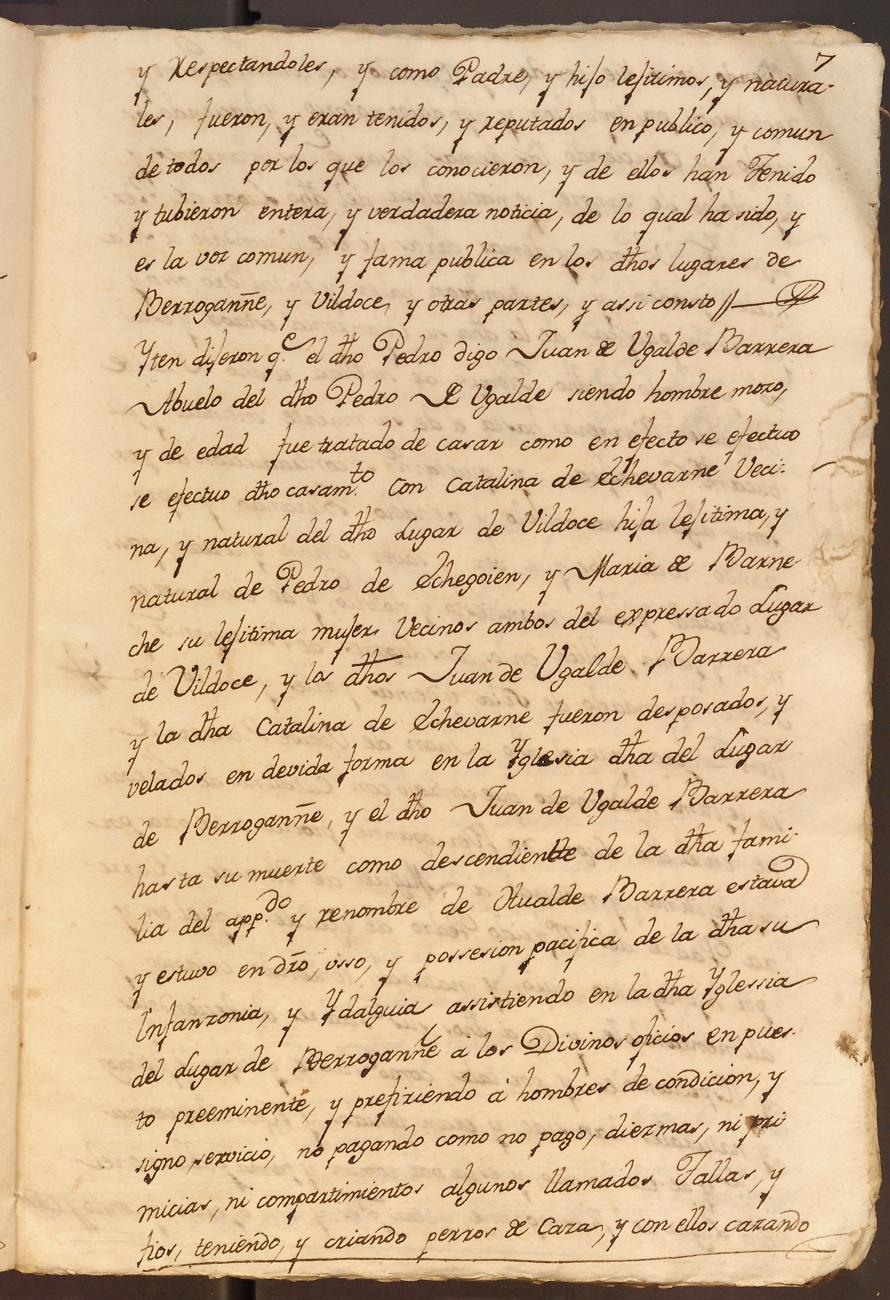 7
y Respectandoles, y como Padre, y hijo lejitimos, y natura-
les, fueron, y eran tenidos, y reputados en publico, y comun
de todos por los que los conocieron, y de ellos han Tenido
y tubieron entera, y verdadera noticia, de lo qual ha sido, y
es la voz comun, y fama publica en los dhos lugares de
Berrogañe, y Vildoce, y otras partes, y assi consto //
Yten dijeron q.e el dho Pedro digo Juan de Ugalde Barrera
Abuelo del dho Pedro de Ugalde siendo hombre mozo,
y de edad fue tratado de casar como en efecto se efectuo
se efectuo dho casam.to con Catalina de Echevarne Veci-
na, y natural del dho Lugar de Vildoce hija lejitima, y
natural de Pedro de Echegoien, y Maria de Barne-
che su lejitima mujer Vecinos ambos del expressado Lugar
de Vildoce, y los dhos Juan de Ugalde Barrera
y la dha Catalina de Echevarne fueron desposados, y
velados en devida forma en la Yglesia dha del Lugar
de Berrogañe, y el dho Juan de Ugalde Barrera
hasta su muerte como descendiente de la dha fami-
lia del app.do y renombre de Hualde Barrera estava
y estuvo en dro, usso, y possesion pacifica de la dha su
Ynfanzonia, y Ydalguia assistiendo en la dha Yglessia
del Lugar de Berrogañe à los Divinos oficios en pues-
to preeminente, y prefiriendo à hombres de condicion, y
signo servicio, no pagando como no pago, diezmas, ni pri
micias, ni compartimientos algunos llamados Tallas, y
fios, teniendo, y criando perros de Caza, y con ellos cazando